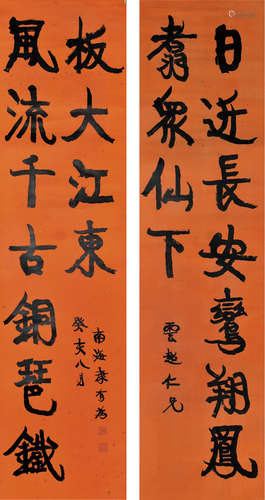 日近長安鸞翔鳳
翥眾仙下
雲越仁兄
風流千古銅琶鐵
板大江東
癸亥八月
南海康有為